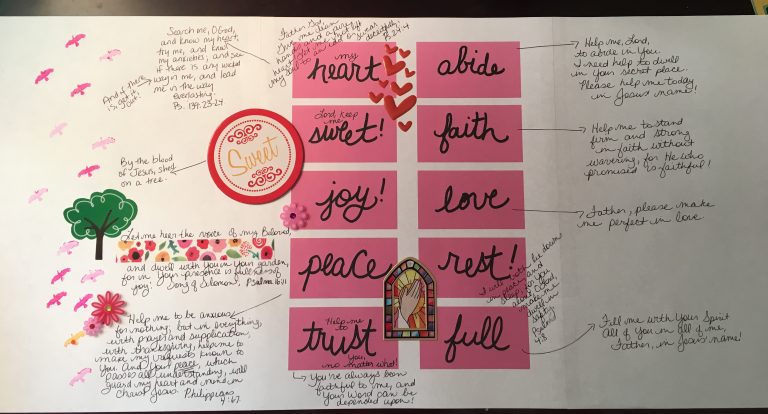 Search me, O God,
and know my heart,
try me, and know
my anxieties; and see
if there is any wicked
way in me, and lead
me in the way
everlasting.
Ps. 139:23-24
And if there
is, get it
out
Father God,
give me clean
hands and a pure
heart
Ps. 24:4
my
heart
abide
Help me, Lord,
to abide in You.
I need help to dwell
in Your secret place.
Please help me today
in Jesus' name!
Lord, keep
me
sweet!
Sweet
By the blood
of Jesus, shed
on a tree.
faith
Help me to stand
firm and strong
in faith without
wavering, for He who
promised is faithful!
joy!
Let me hear the voice of my Beloved,
and dwell with You in Your garden,
for in Your presence is fullness of
joy! Song of Solomon, Psalm 16:11
love
Father, please make
me perfect in love
peace
Help me to be anxious
for nothing, but in everything,
with prayer and supplication,
with thanksgiving, help me to
make my requests known to
You. And Your peace, which
passes all understanding, will
guard my heart and mind in
Christ Jesus. Philippians
4:6-7
rest!
I will both lie down
in peace, and
sleep, for You
alone, O Lord,
make me
dwell in
safety.
Psalm
4:8
Help me
to
trust
You,
no matter what!
You've always been
faithful to me, and
Your Word can be
depended upon!
full
Fill me with Your Spirit
All of You in all of me,
Father, in Jesus' name!